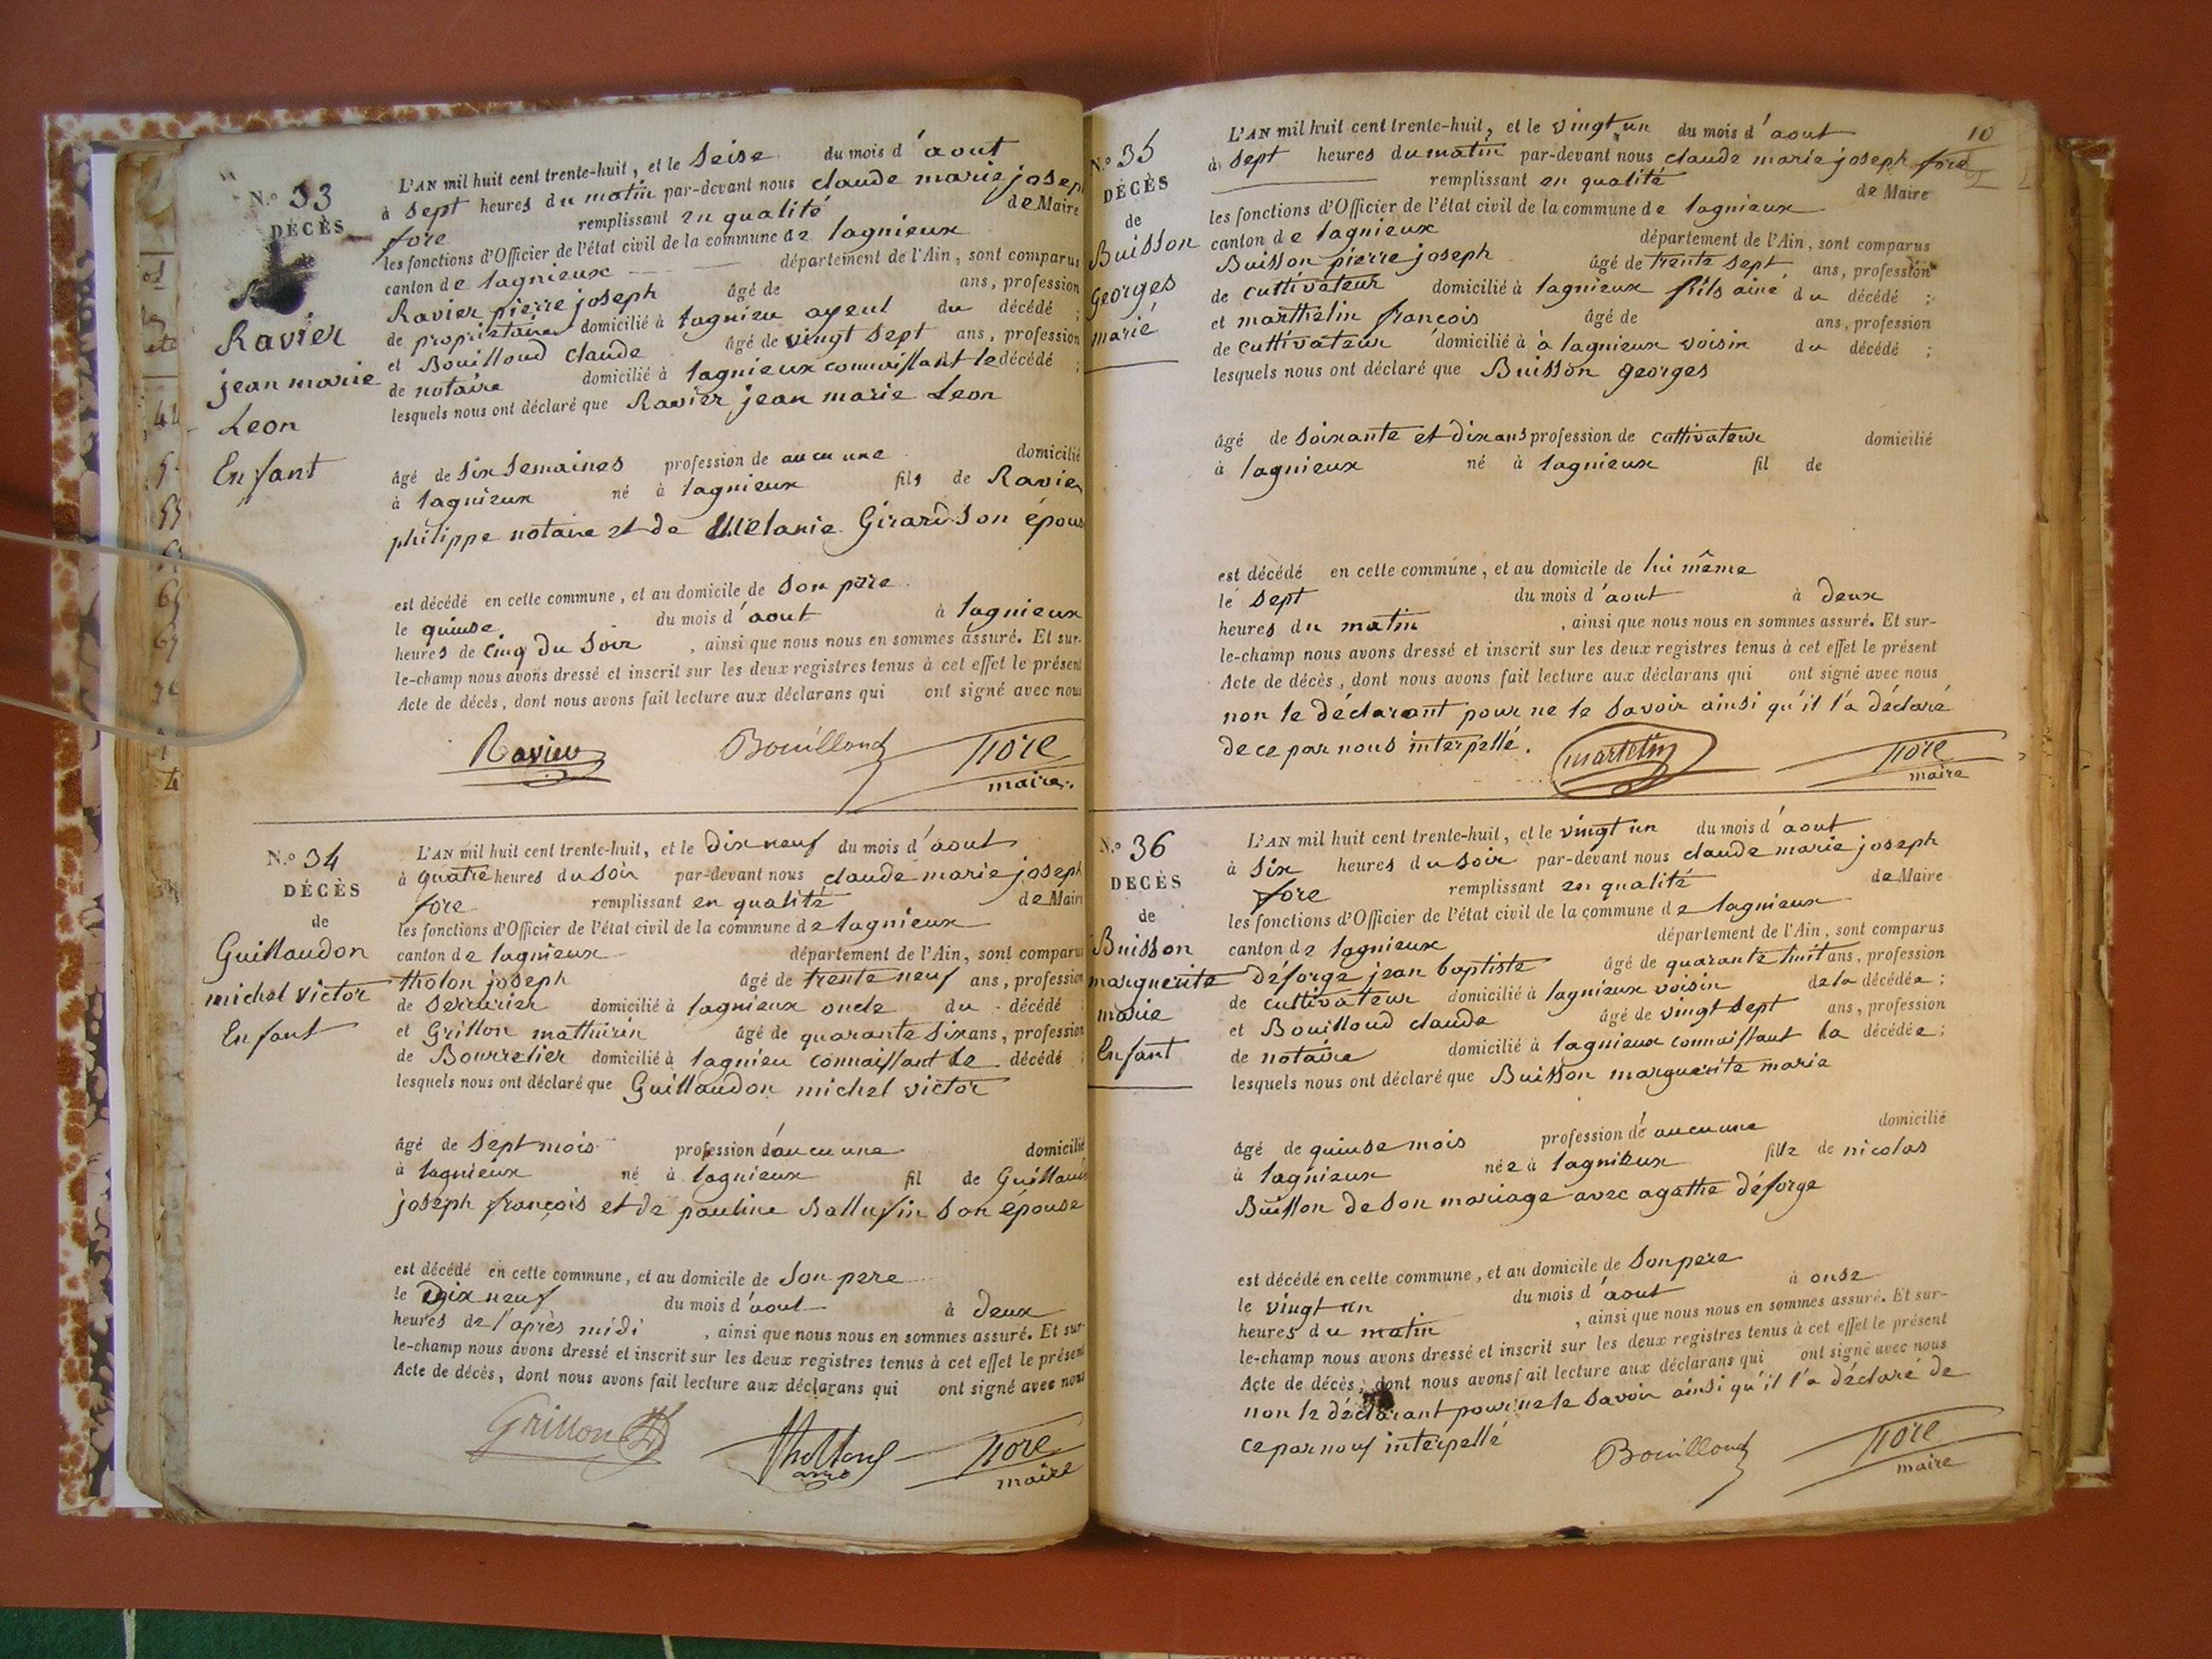 N.° 33
DÉCÈS
de
Ravier
jean marie
Leon
Enfant
L'AN mil huit cent trente-huit, et le seise du mois d'aout
à sept heures du matin par-devant nous claude marie josep
fore remplissant en qualité de Maire
les fonctions d'Officier de l'état civil de la commune de lagnieux
canton de lagnieux département de l'Ain, sont comparus
Ravier pierre joseph âgé de ans, profession
de proprietaire domicilié à lagnieu ayeul du décédé ;
et Bouilloud claude âgé de vingt sept ans, profession
de notaire domicilié à lagnieux connaissant le décédé ;
lesquels nous ont déclaré que Ravier jean marie Leon
âgé de six semaines profession de aucune domicilié
à lagnieux né à lagnieux fils de Ravier
philippe notaire et de Mélanie Girard son épous
est décédé en cette commune, et au domicile de son père
le quinse du mois d'aout à lagnieux
heures de cinq du soir , ainsi que nous nous en sommes assuré. Et sur-
le-champ nous avons dressé et inscrit sur les deux registres tenus à cet effet le présent
Acte de décès, dont nous avons fait lecture aux déclarans qui ont signé avec nous
Ravier Bouilloud fore
maire.
N.° 34
DÉCÈS
de
Guillaudon
michel victor
Enfant
L'AN mil huit cent trente-huit, et le dix neuf du mois d'aout
à quatre heures du soir par-devant nous claude marie joseph
fore remplissant en qualité de Maire
les fonctions d'Officier de l'état civil de la commune de lagnieux
canton de lagnieux département de l'Ain, sont comparus
tholon joseph âgé de trente neuf ans, profession
de serrurier domicilié à lagnieux oncle du décédé
et Grillon mathurin âgé de quarante six ans, profession
de Bourrelier domicilié à lagnieu connaissant le décédé ;
lesquels nous ont déclaré que Guillaudon michel victor
âgé de sept mois profession d'aucune domicilié
à lagnieux né à lagnieux fil de Guillaud
joseph françois et de pauline son épouse
est décédé en cette commune, et au domicile de son pere
le Dix neuf du mois d'aout à deux
heures de l'après midi , ainsi que nous nous en sommes assuré. Et sur-
le-champ nous avons dressé et inscrit sur les deux registres tenus à cet effet le présent
Acte de décès, dont nous avons fait lecture aux déclarans qui ont signé avec nous
Grillon fore
maire
10
N.° 35
DÉCÈS
de
Buisson
georges
marié
L'AN mil huit cent trente-huit, et le vingt un du mois d'aout
à sept heures du matin par-devant nous claude marie joseph fore
remplissant en qualité de Maire
les fonctions d'Officier de l'état civil de la commune de lagnieux
canton de lagnieux département de l'Ain, sont comparus
Buisson pierre joseph âgé de trente sept ans, profession
de cultivateur domicilié à lagnieux fils ainé du décédé ;
et marthelin francois âgé de ans, profession
de cultivateur domicilié à à lagnieux voisin du décédé ;
lesquels nous ont déclaré que Buisson georges
âgé de soixante et dix ans profession de cultivateur domicilié
à lagnieux né à lagnieux fil de
est décédé en cette commune, et au domicile de lui même
le sept du mois d'aout à deux
heures du matin , ainsi que nous nous en sommes assuré. Et sur-
le-champ nous avons dressé et inscrit sur les deux registres tenus à cet effet le présent
Acte de décès, dont nous avons fait lecture aux déclarans qui ont signé avec nous
non le déclarant pour ne le savoir ainsi qu'il l'a déclaré
de ce par nous interpellé. martelin fore
maire
N.° 36
DECÈS
de
Buisson
marguerite
marie
Enfant
L'AN mil huit cent trente-huit, et le vingt un du mois d'aout
à six heures du soir par-devant nous claude marie joseph
fore remplissant en qualité de Maire
les fonctions d'Officier de l'état civil de la commune de lagnieux
canton de lagnieux département de l'Ain, sont comparus
déforge jean baptiste âgé de quarante huit ans, profession
de cultivateur domicilié à lagnieux voisin de la décédée ;
et Bouilloud claude âgé de vingt sept ans, profession
de notaire domicilié à lagnieux connaissant la décédée ;
lesquels nous ont déclaré que Buisson marguerite marie
âgé de quinse mois profession de aucune domicilié
à lagnieux née à lagnieux fille de nicolas
Buisson de son mariage avec agathe déforge
est décédé en cette commune, et au domicile de son pere
le vingt un du mois d'aout à onse
heures du matin , ainsi que nous nous en sommes assuré. Et sur-
le-champ nous avons dressé et inscrit sur les deux registres tenus à cet effet le présent
Acte de décès, dont nous avons fait lecture aux déclarans qui ont signé avec nous
non le déclarant pour ne le savoir ainsi qu'il l'a déclaré de
ce par nous interpellé Bouilloud fore
maire